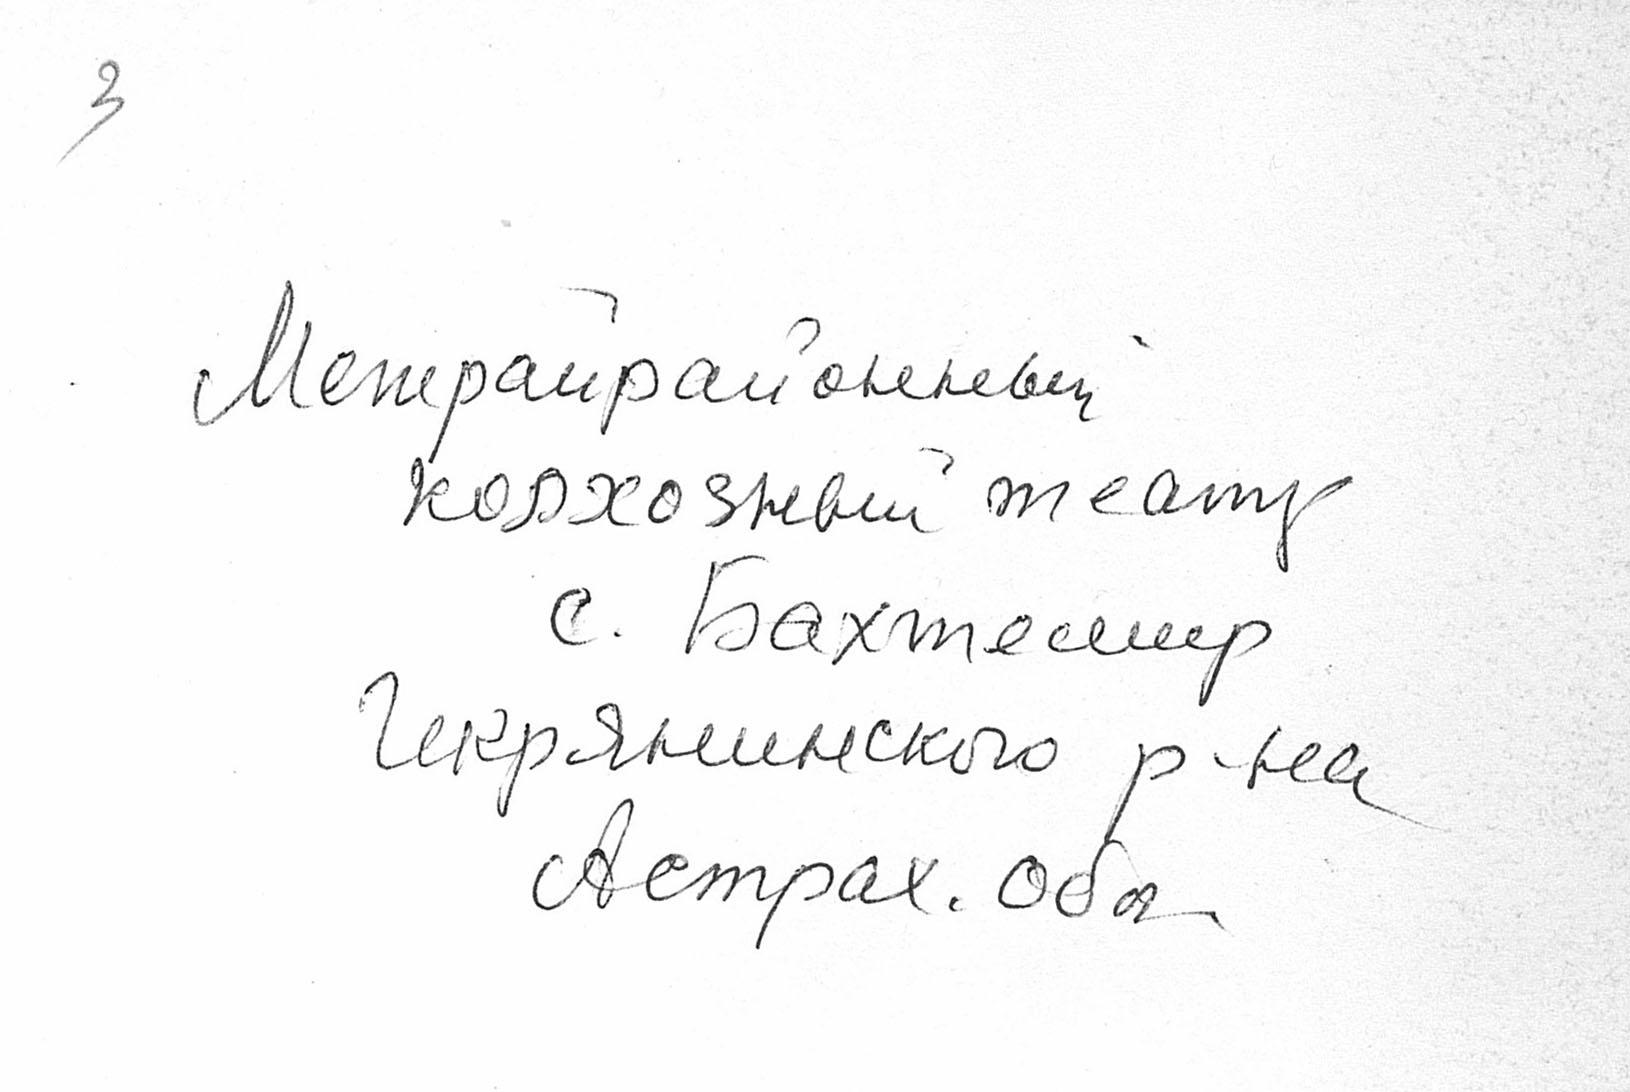 3
Метрайрайонный
колхозный театр
с. Бахтемир
Икрянинского р-на
Астрах. обл